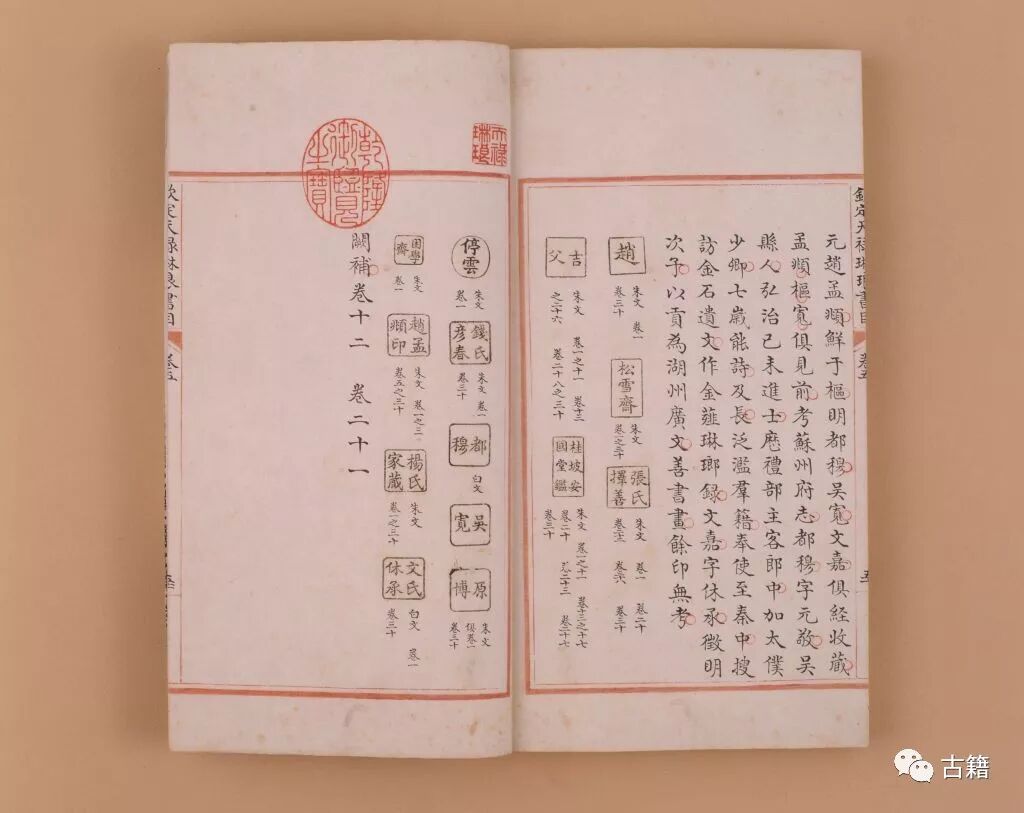 元趙孟頫鮮于樞明都穆吳寬文嘉俱経收藏
孟頫樞寬俱見前考蘇州府志都穆字元敬吳
縣人弘治己未進士歷禮部主客郎中加太僕
少卿七歲能詩及長泛濫羣籍奉使至秦中搜
訪金石遺文作金薤琳瑯録文嘉字休承徵明
次子以貢為湖州廣文善書畫餘印無考
趙
朱文 卷一
卷三十
松雪齋
朱文
張氏擇善
朱文 卷一 卷二十
卷三十
吉父
朱文 卷一之十一 卷十三
之二十六 卷二十八之三十
桂坡安國堂鑑
朱文 卷一之十一 卷十三之十七
卷二十 卷二十三 卷二十七
卷三十
天祿琳琅
停雲
朱文
卷一
錢氏彥春
朱文 卷一
卷三十
都穆
白文
吳寬
原博
朱文
俱卷一
卷三十
困學齋
朱文
卷一
趙孟頫印
朱文
卷五之三十
楊氏家藏
朱文
卷一之三十
文氏休承
白文 卷一
卷三十
闕補卷十二 卷二十一
乾隆御覽之寶
欽定天祿琳琅書目 卷五
古籍